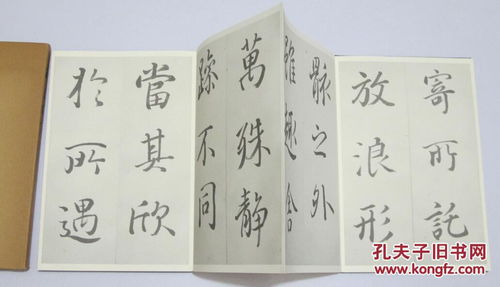 寄所託
放浪形
骸之外
雖趣舍
萬殊静
躁不同
當其欣
於所遇
孔夫子旧书网
www.kongfz.com